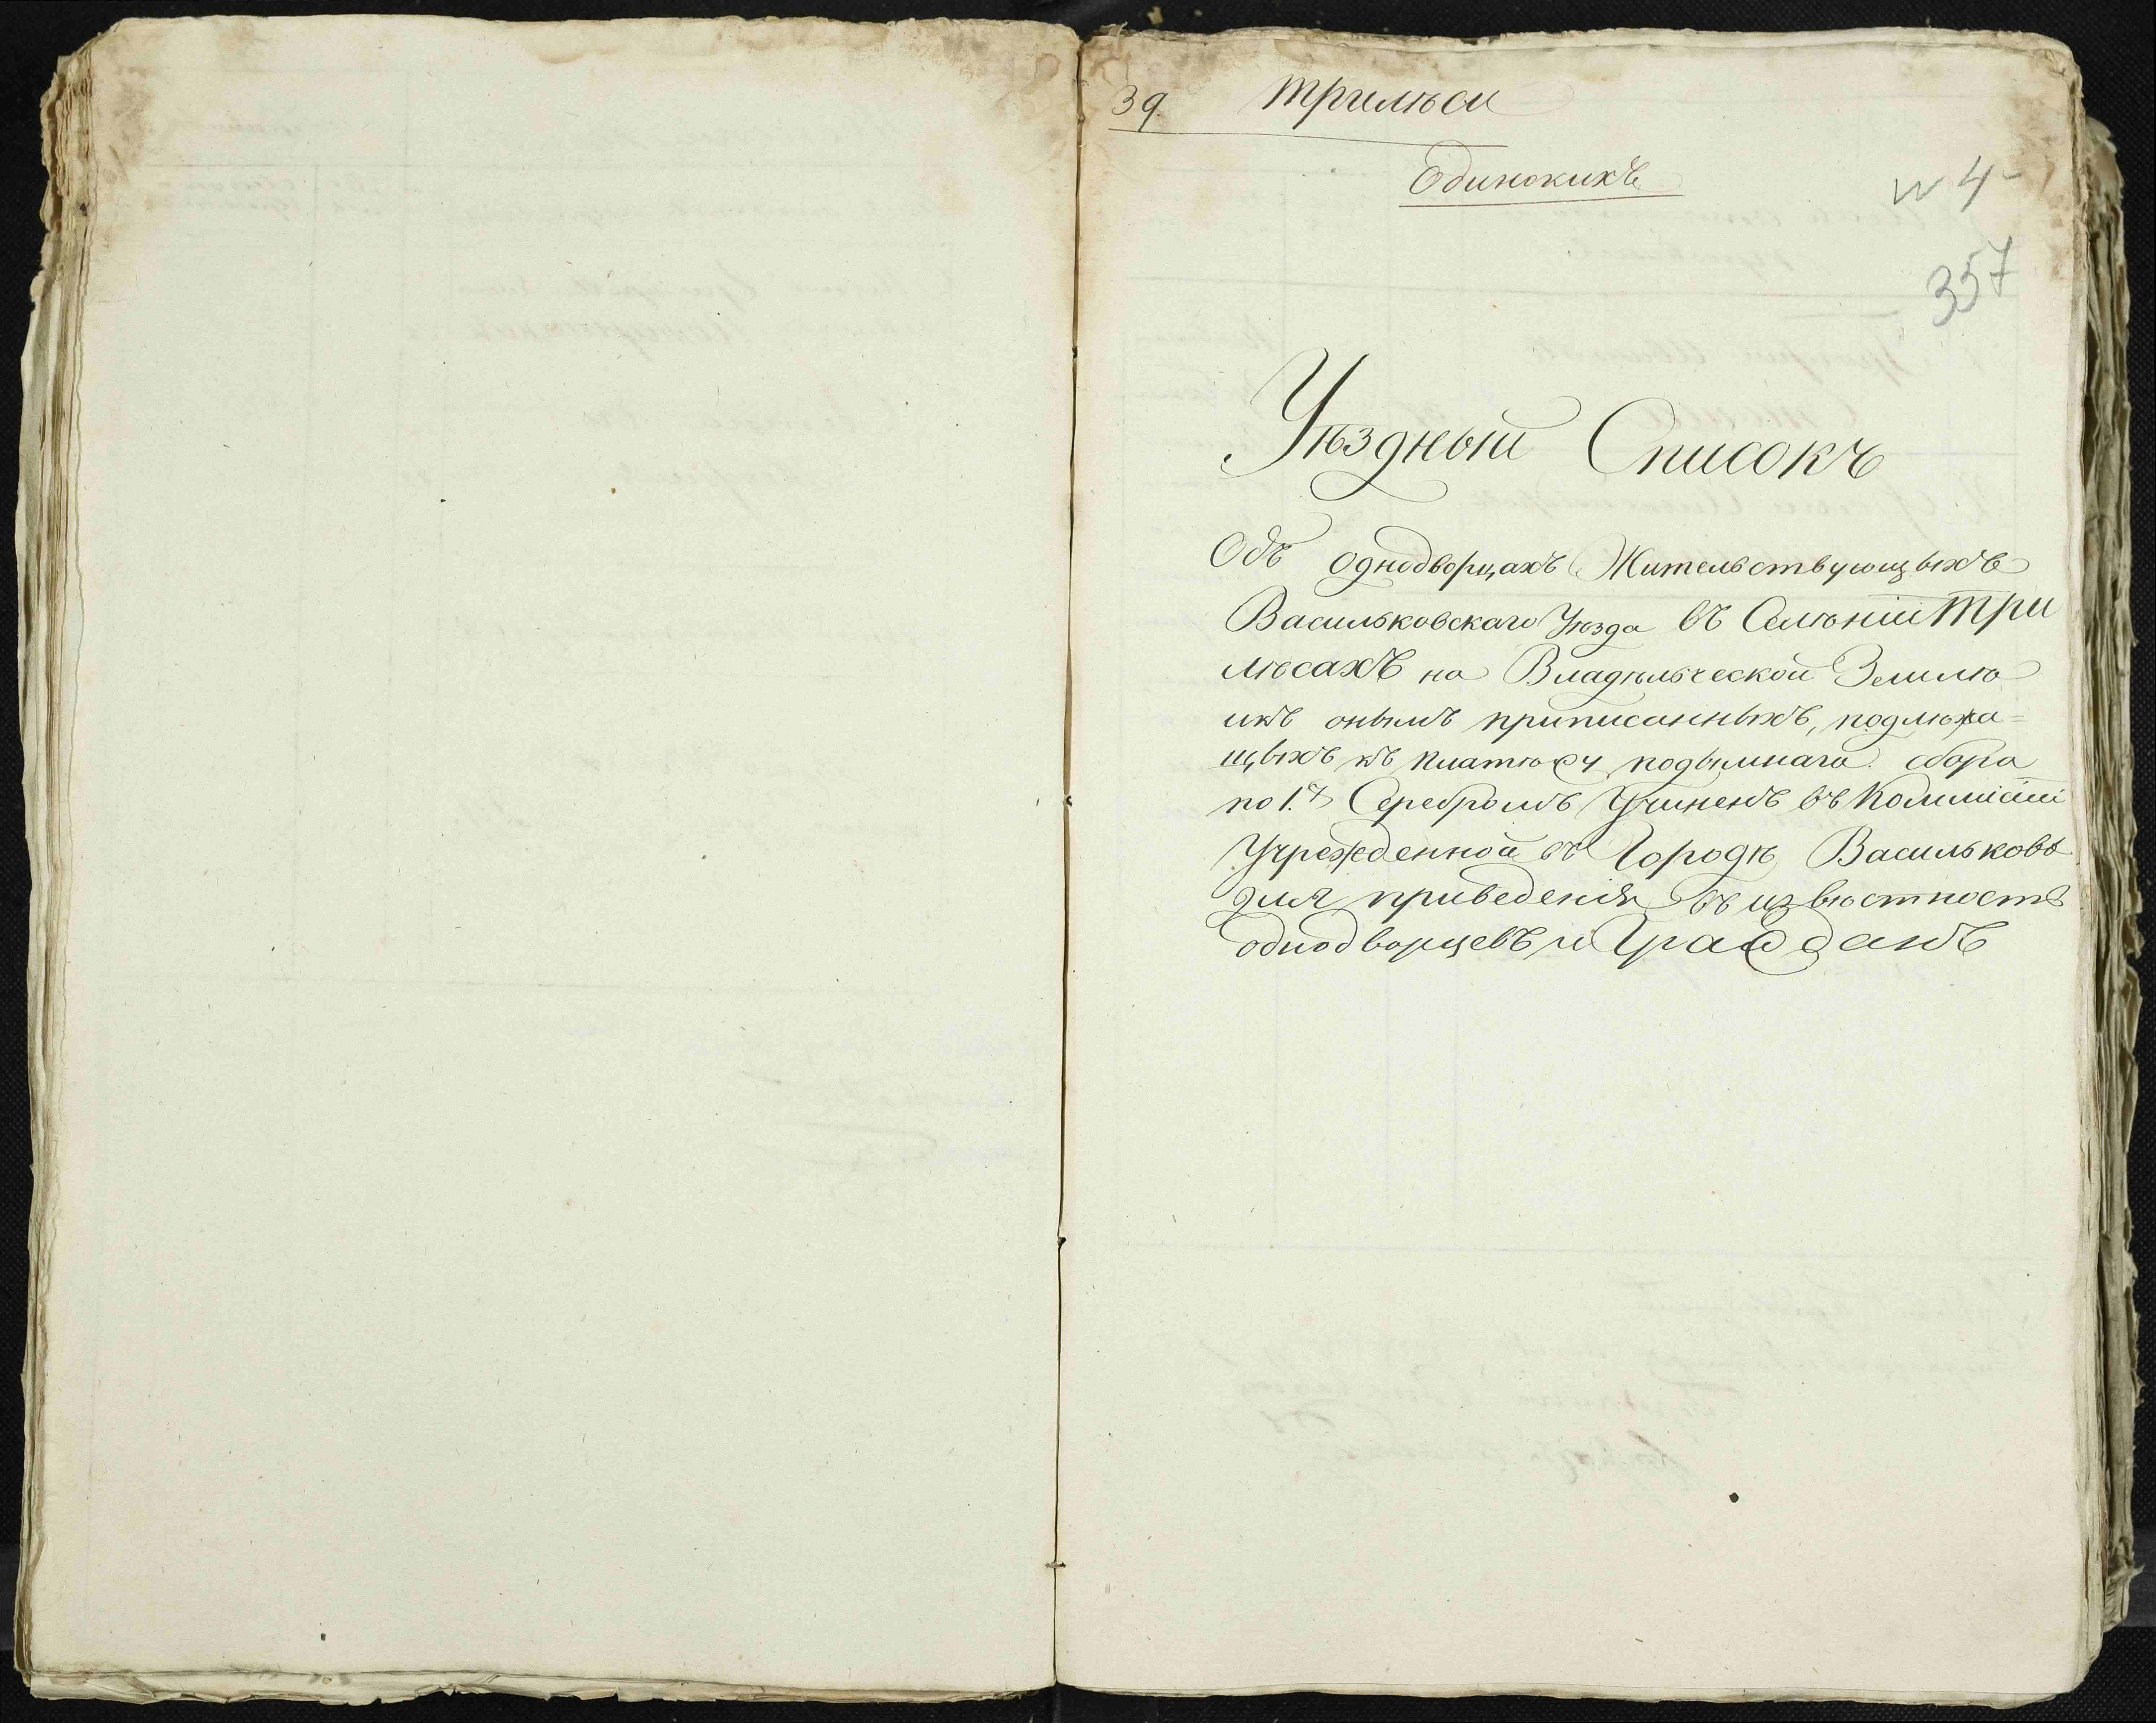 39. Трилѣси
Одинокихъ
N 4
357
Уѣздный Списокъ
Объ однодворцахъ Жительствующыхъ
Васильковскаго Уѣзда въ Селѣніи Три
лѣсахъ на Владѣльческой Землѣ
икъ онымъ приписанныхъ, подлѣжа=
щыхъ къ платѣжу подымнаго сбора
по 1. Серебромъ Учиненъ въ Коммисіи
Учрежденной въ Городѣ Васильковѣ
для приведенія въ извѣстность
однодворцевъ и Гражданъ